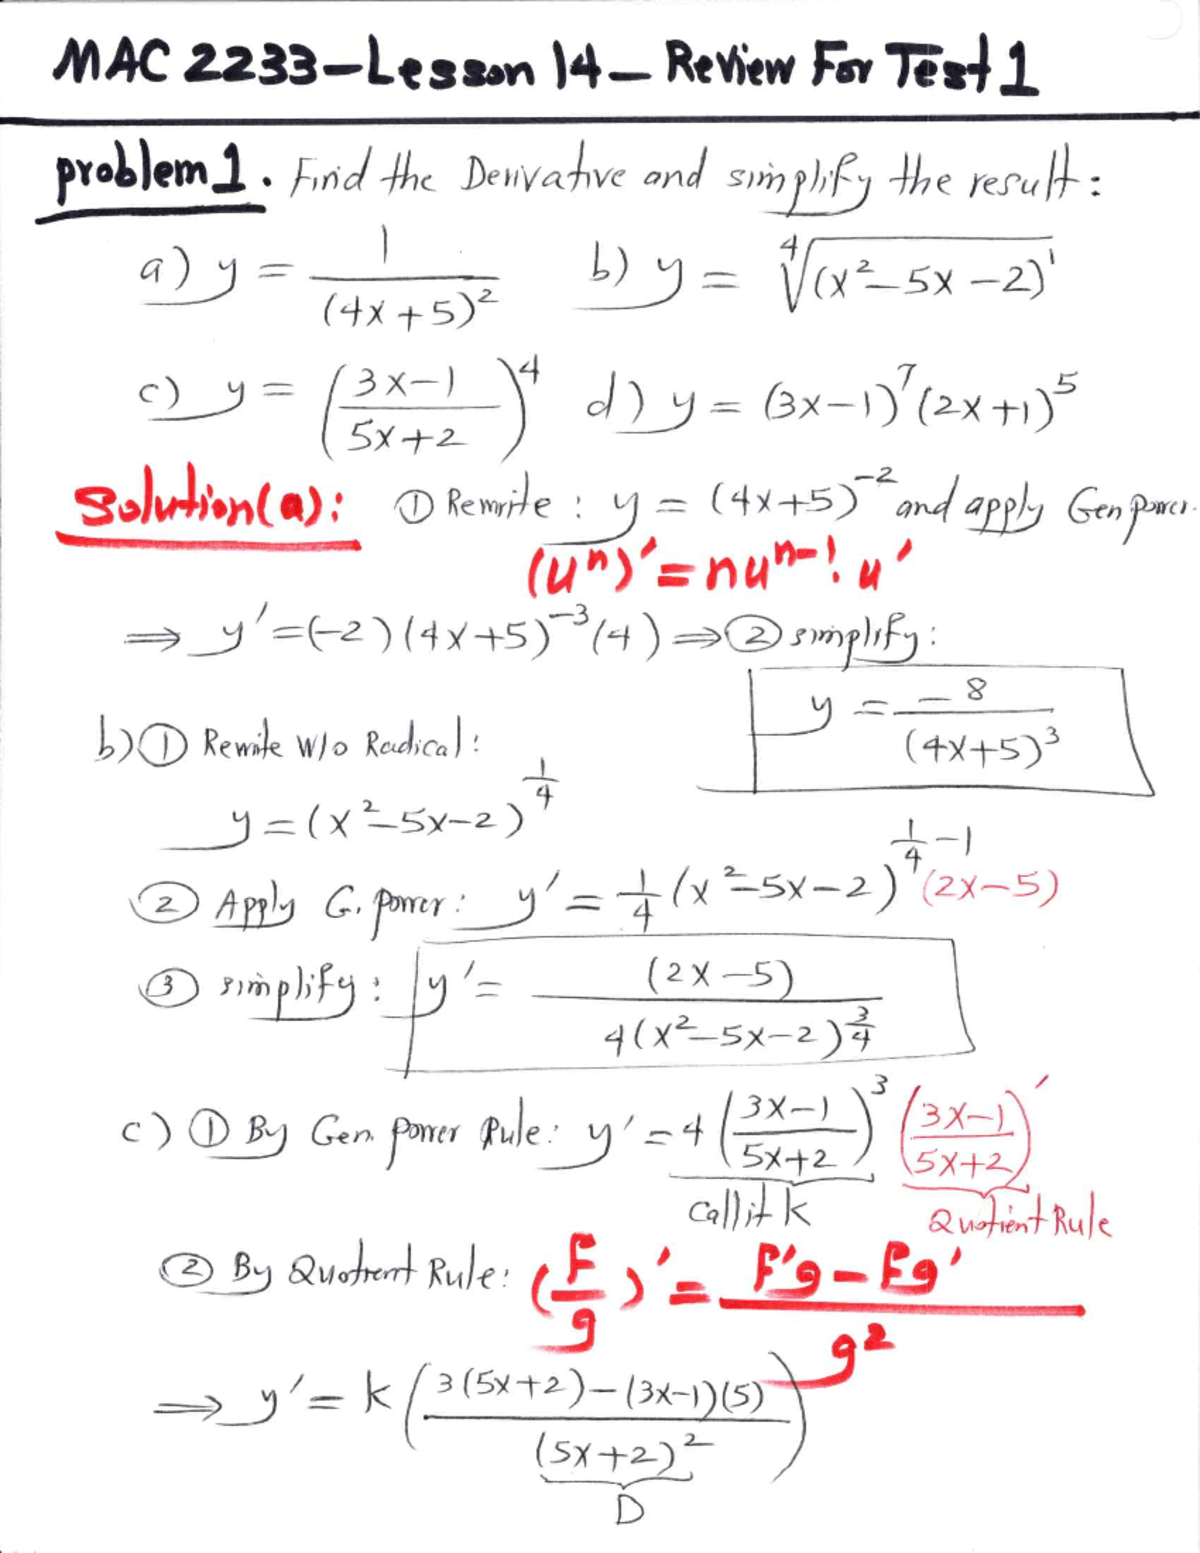 MAC 2233-Lesson 14- Review For Test 1
problem 1. Find the Derivative and simplify the result:
a) y = 1/(4x+5)² b) y = ⁴√(x²-5x-2)'
c) y = ((3x-1)/(5x+2))⁴ d) y = (3x-1)⁷(2x+1)⁵
Solution(a): ① Rewrite: y = (4x+5)⁻² and apply Gen power.
(uⁿ)' = nuⁿ⁻¹. u'
⇒ y' = (-2)(4x+5)⁻³(4) ⇒ ② simplify:
y = -8/(4x+5)³
b) ① Rewrite w/o Radical:
y = (x²-5x-2)^(1/4)
② Apply G. power: y' = 1/4 (x²-5x-2)^(1/4 -1) (2x-5)
③ simplify: y' = (2x-5)/(4(x²-5x-2)^(3/4))
c) ① By Gen. power Rule: y' = 4((3x-1)/(5x+2))³ ((3x-1)/(5x+2))'
Call it k Quotient Rule
② By Quotient Rule: (F/g)' = (F'g - Fg')/g²
⇒ y' = k((3(5x+2)-(3x-1)(5))/(5x+2)²)
D